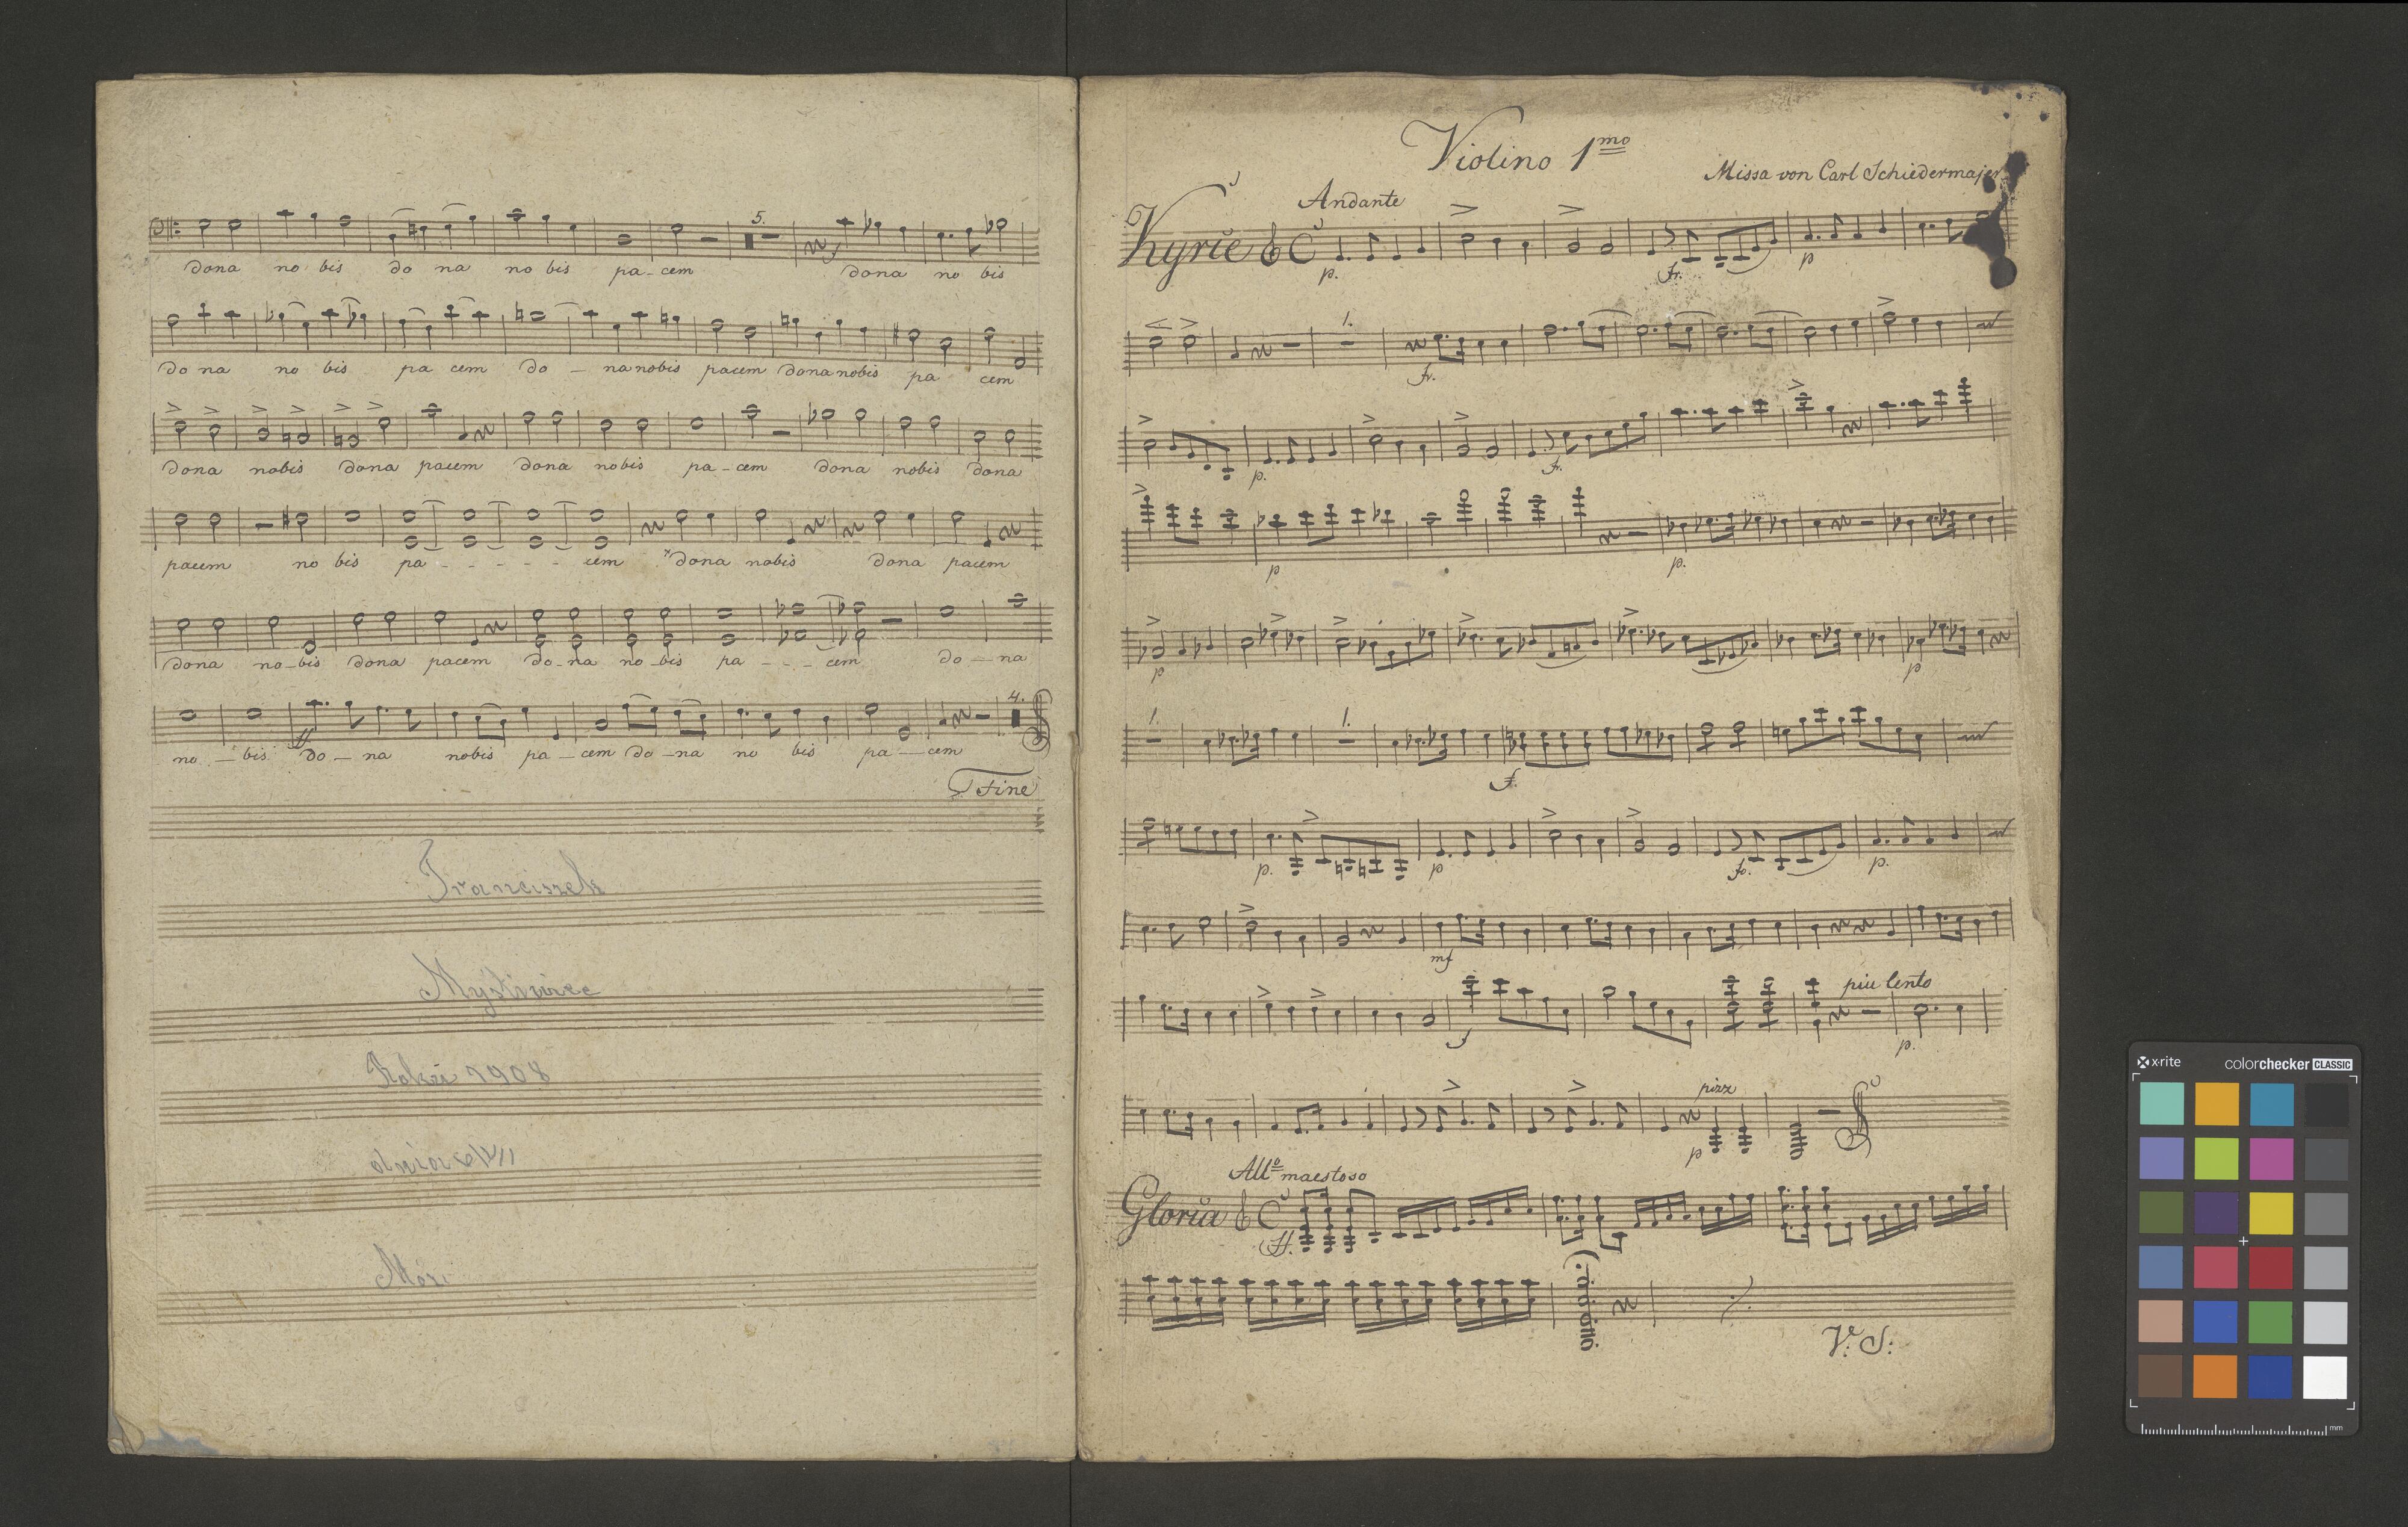 5.
dona no bis do na no bis pa - cem dona no bis
do na no bis pa cem do - na nobis pacem dona nobis pa cem
dona nobis dona pacem dona nobis pa - cem dona nobis dona
pacem no bis pa - - - - - cem dona nobis dona pacem
dona no - bis dona pacem do - na no - bis pa - - - cem do - na
4.
ff
no - bis do - na nobis pa - cem do - na no bis pa - cem
Fine
Franciszek
1908
dnia
Violino 1mo
Missa von Carl Schiedermajer
Andante
Kyrie C
p. fr. p
1.
fr.
p. f.
p p.
p p
1. 1.
f.
p. p fo. p.
mf
piu lento
f p.
pizz
p
Allo maestoso
Gloria C
ff.
V. S:
x-rite colorchecker CLASSIC
mm